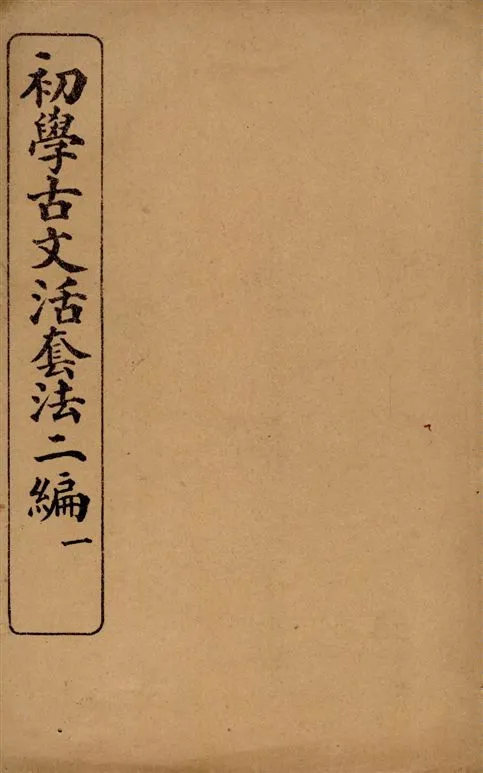 初學古文活套法二編一